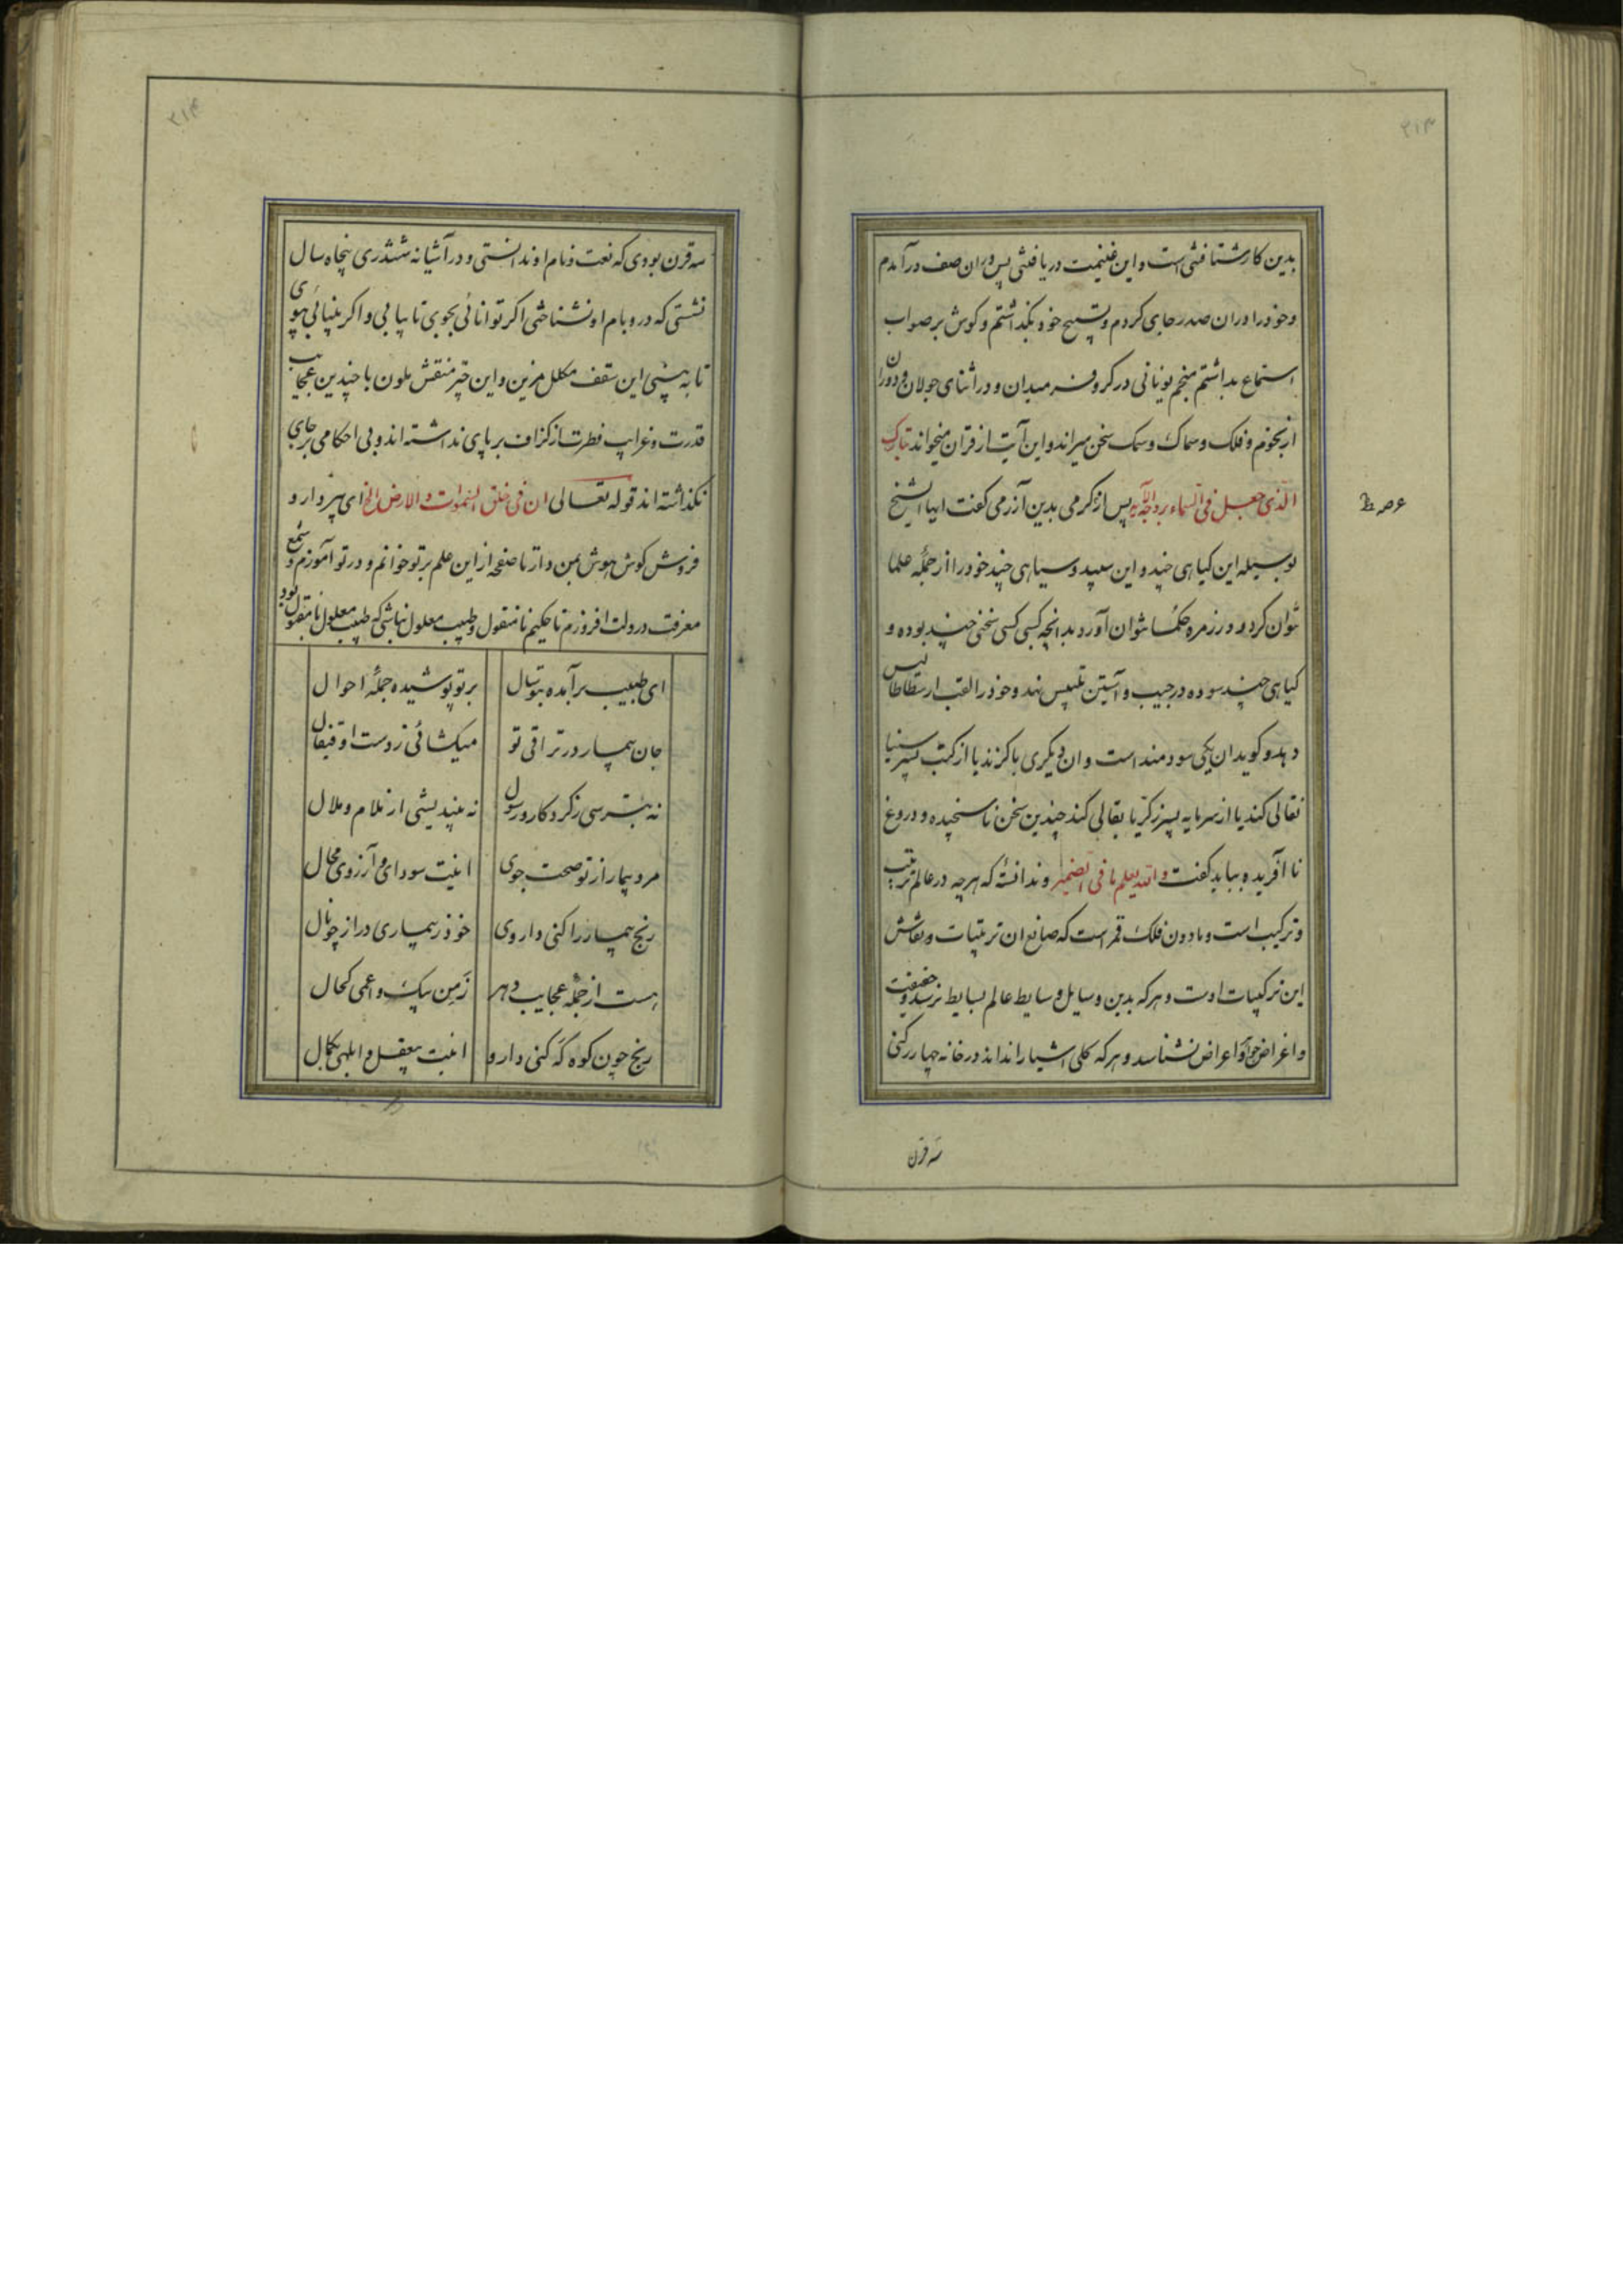 ۲۱۳
بدین کار شتافتنی است و این غنیمت دریافتنی پس در ان صف درآمدم
وخود را دران صدر جای کردم و تسبیح خود بگذاشتم و گوش بر صواب
استماع بداشتم منجم یونانی در کر و فر میدان و در اثنای جولان و دوران
از نجوم و فلک و سماک و سمک سخن میراند و این آیت از قران میخواند تبارک
الذی جعل فی السماء بروجا الآیه پس از گرمی بدین آزرمی گفت ایها الشیخ
عصر ظ
بوسیله این گیاهی چند و این سپید و سیاهی چند خود را از جمله علما
نتوان کرد و در زمره حکما نتوان آورد بدانچه کسی کسی سخنی چند بوده و
گیاهی چند سوده در جیب و آستین تلبیس نهد و خود را لقب ارسطاطالیس
دهد و گوید ان یکی سودمند است و ان دیگری با گزند یا از کتب پسر سینا
نقالی کند یا از سرمایه پسر زکریا بقالی کند چندین سخن ناسنجیده و دروغ
نا آفریده بباید گفت والله یعلم ما فی الضمیر و ندانسته که هرچه در عالم ترتیب
و ترکیب است و مادون فلک قمر است که صانع ان ترتیبات و نقاش
این ترکیبات اوست و هرکه بدین وسایل و سایط عالم بسایط نرسد و حقیقت
و اغراض جواهر و اعراض نشناسد و هرکه کلی اشیا را نداند در خانه چهار رکنی
سه قرن
۲۱۴
سه قرن بودی که نعت و نام او ندانستی و در آشیانه ششدری پنجاه سال
نشستی که در و بام او نشناختی اگر توانائی بجوی تا بیابی و اگر بینائی بپوی
تا به بینی این سقف مکلل مزین و این چتر منقش ملون با چندین عجایب
قدرت و غرایب فطرت از گزاف بر پای نداشته اند و بی احکامی بر جای
نگذاشته اند قوله تعالی ان فی خلق السموات و الارض الخ ای پر دارو
فروش گوش هوش بمن دار تا صفحه از این علم بر تو خوانم و در تو آموزم و شمع
معرفت در دلت افروزم تا حکیم نامنقول و طبیب معلول نباشی که طبیب معلول نامقبول بود
ای طبیب برآمده بتو سال
بر تو پوشیده جمله احوال
جان بیمار در تراقی تو
میگشائی ز دست او قیفال
نه بترسی ز کردکار و رسول
نه بیندیشی از ملام و ملال
مرد بیمار از تو صحت جوی
اینت سودای و آرزوی محال
رنج بیمار را کنی داروی
خود ز بیماری دراز چو نال
هست از جمله عجایب دهر
زمن پیک و اعمی کحال
رنج چون کوه که کنی دارو
اینت بیعقل و ابلهی بکمال